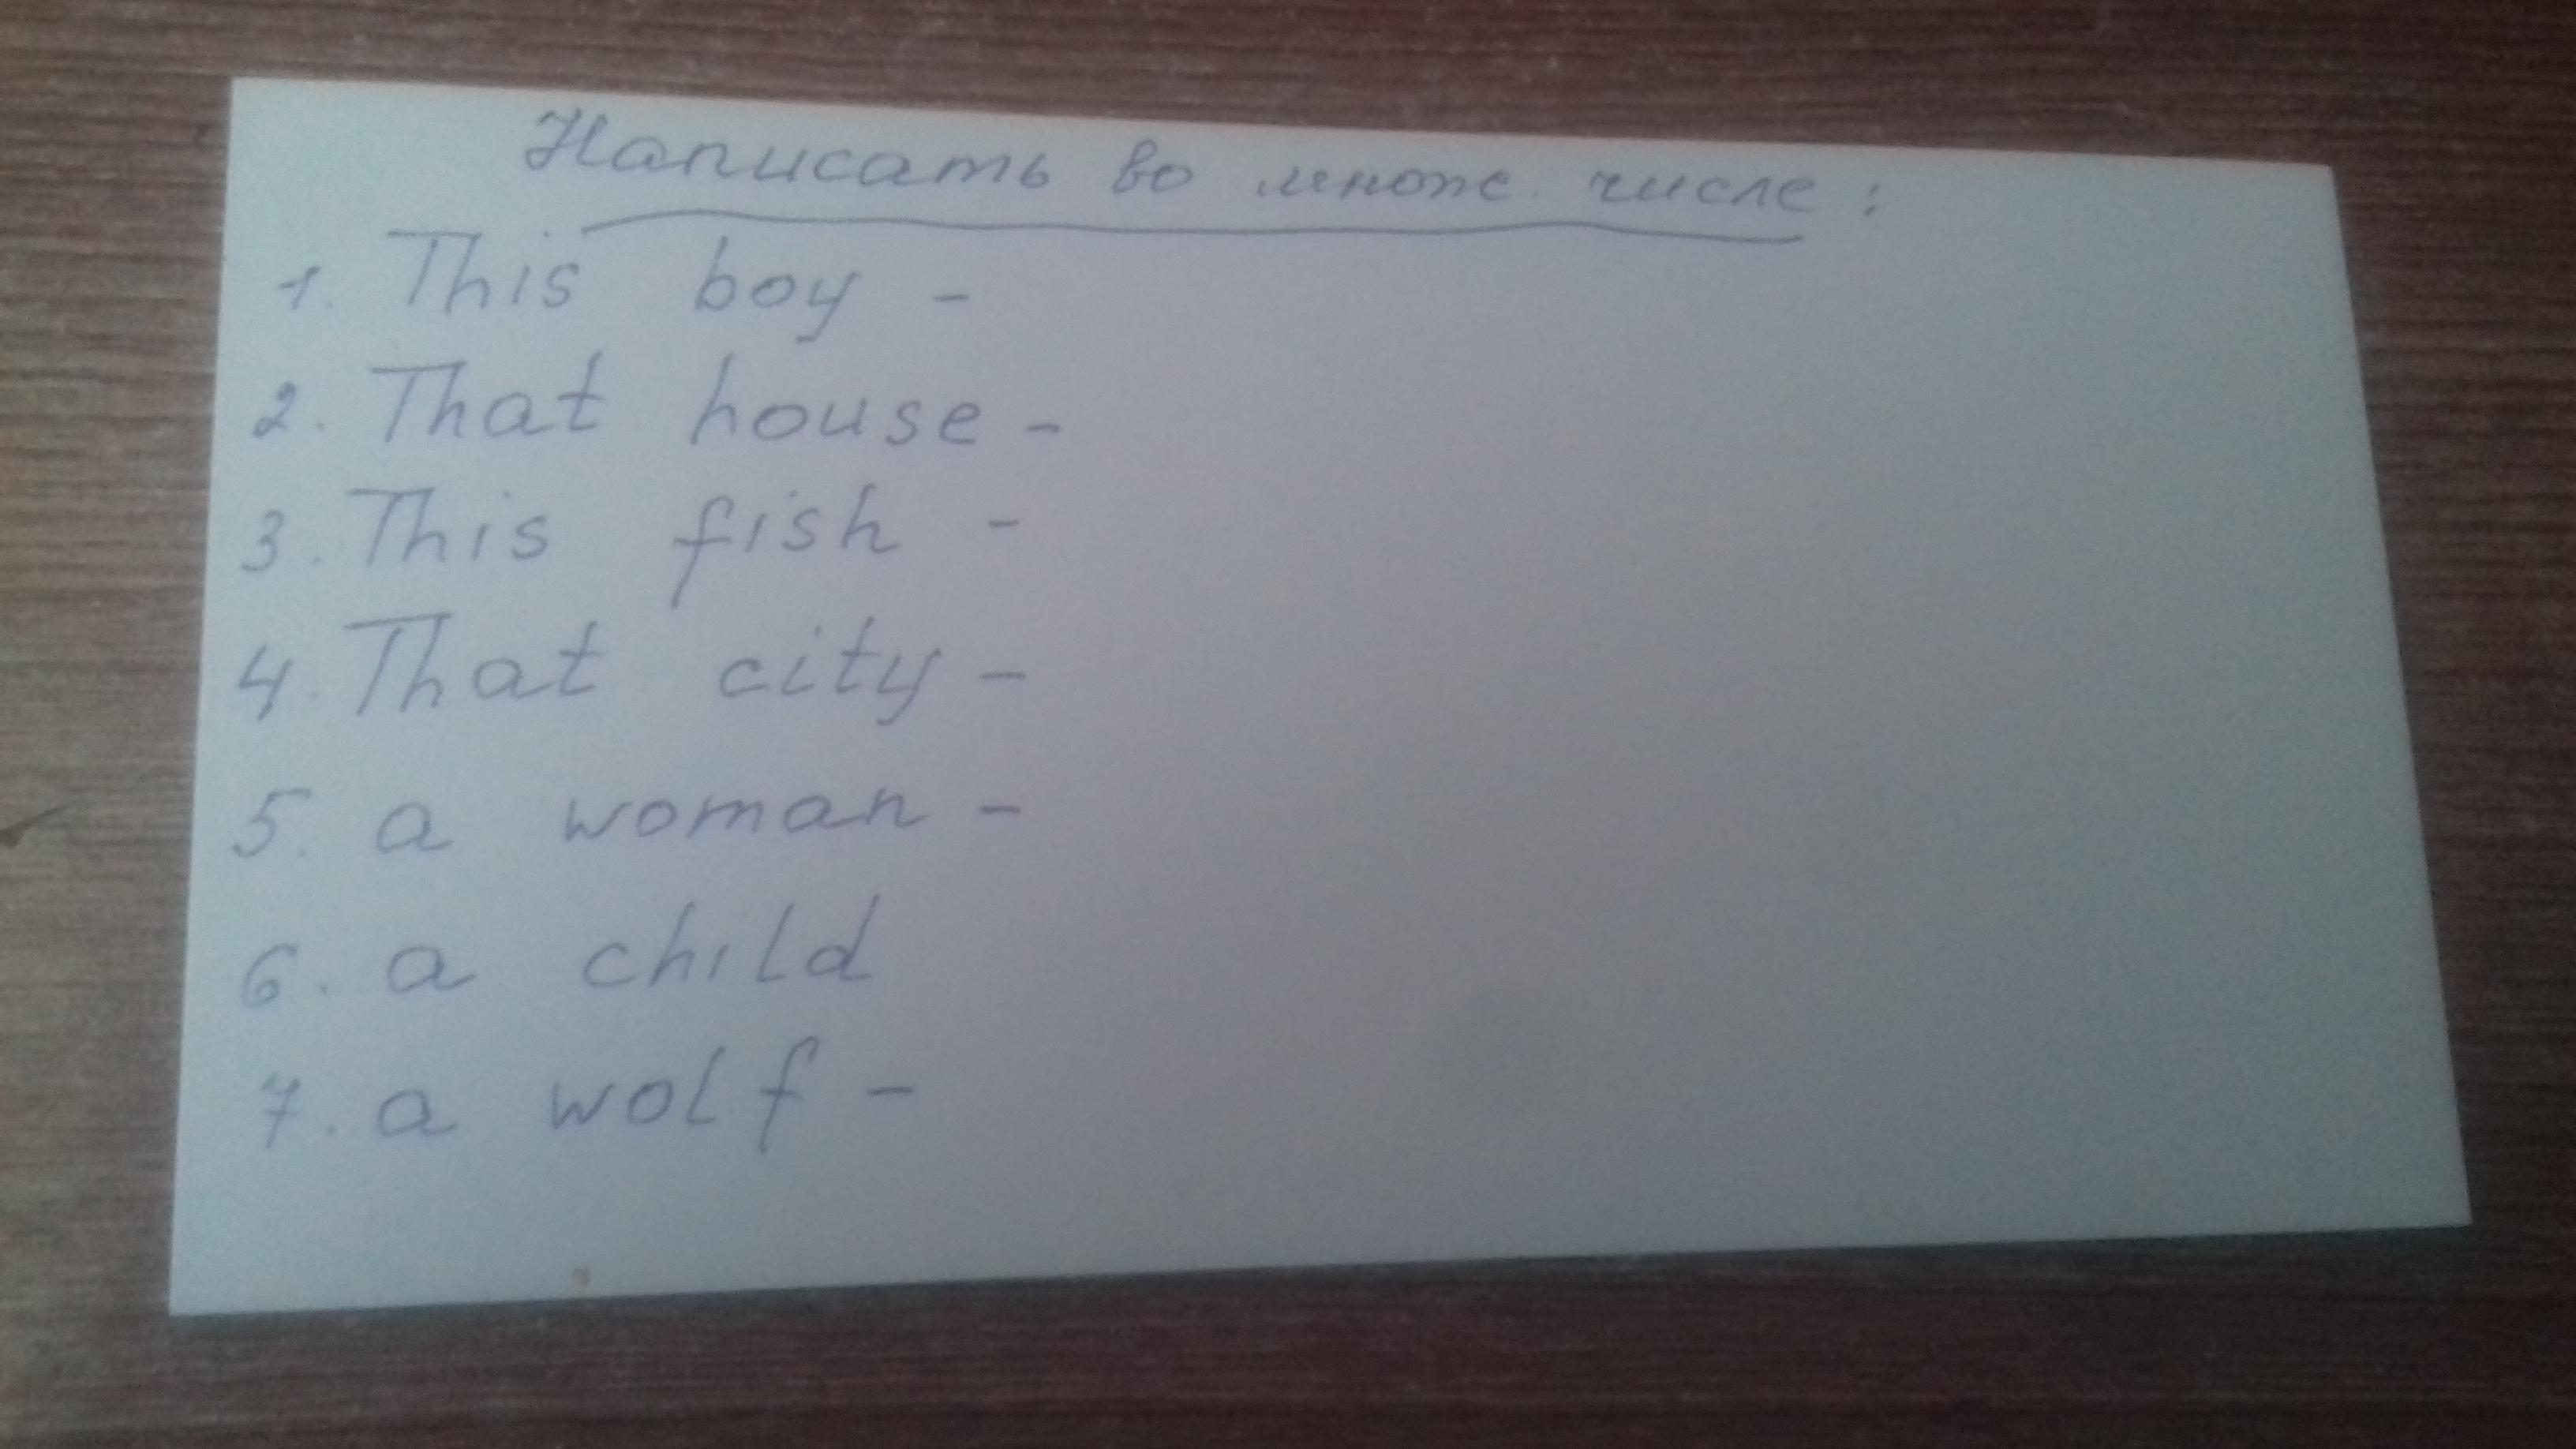 Написать во множ. числе:
1. This boy -
2. That house -
3. This fish -
4. That city -
5. a woman -
6. a child
7. a wolf -